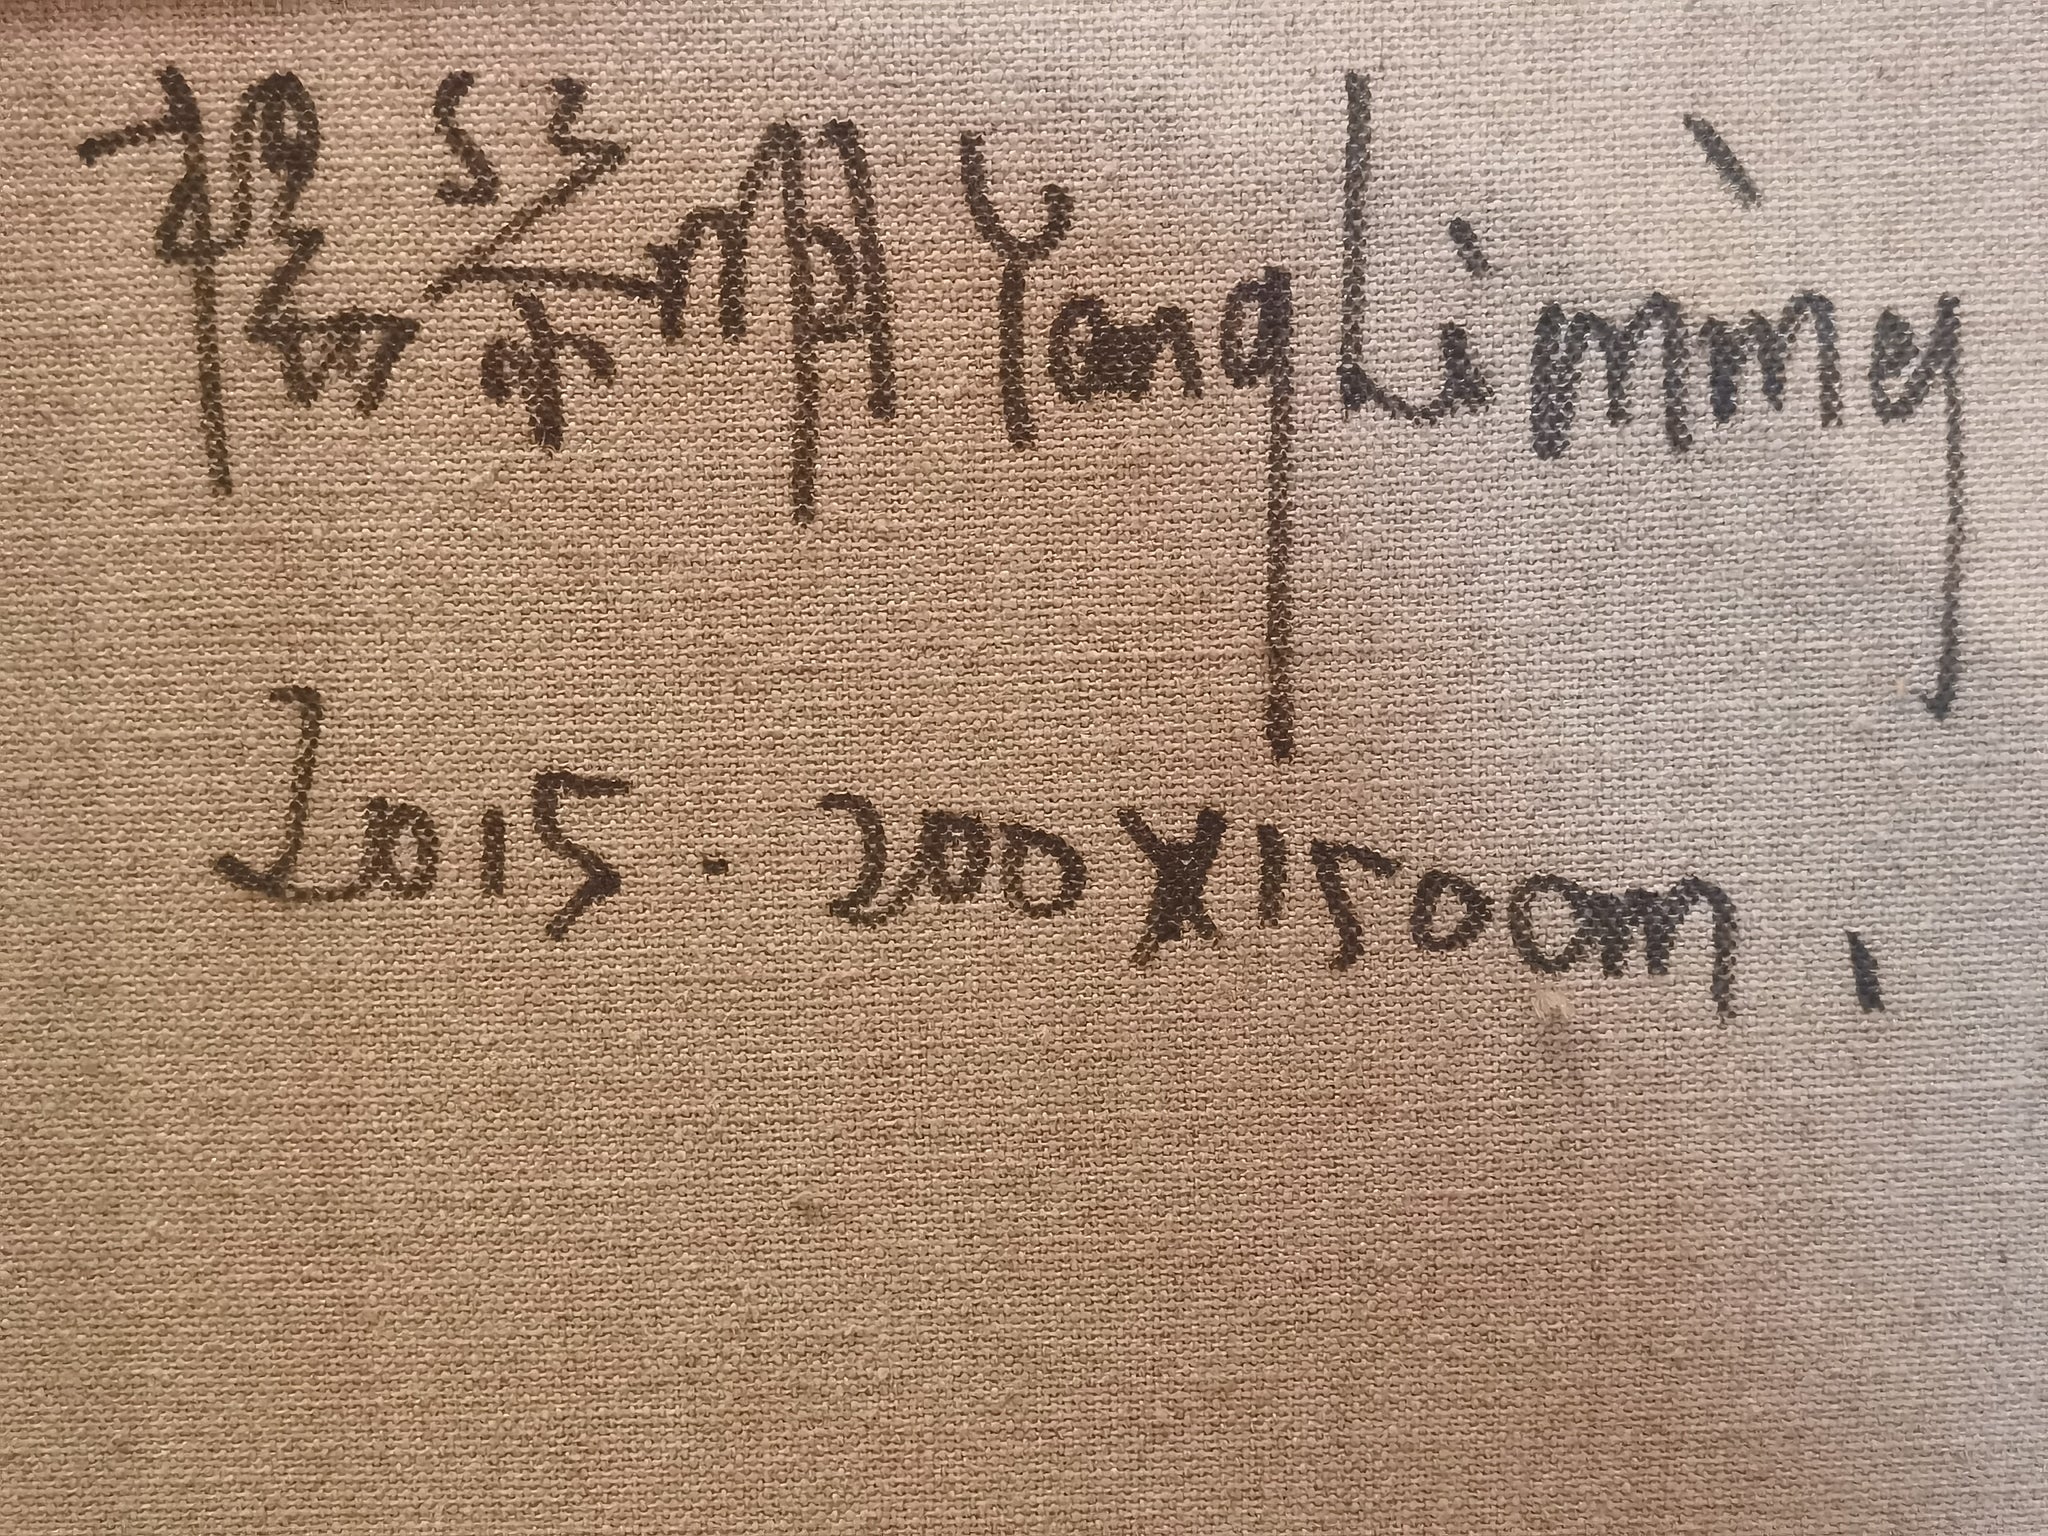 楊黎明 Yang Liming
2015 . 200X150cm.